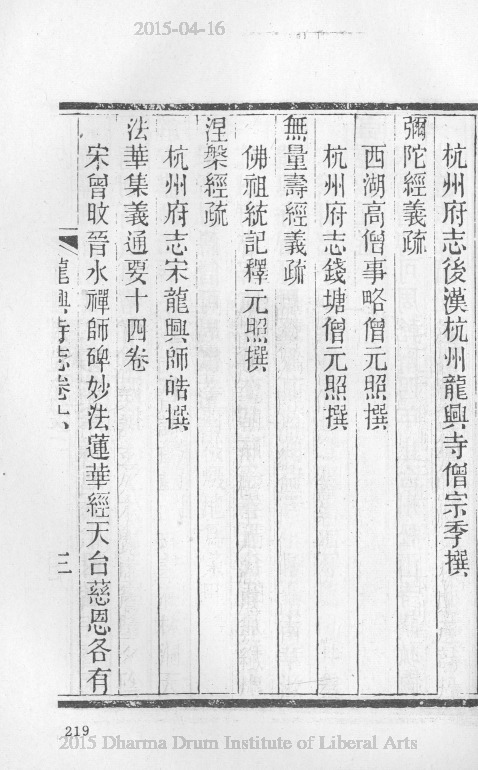 2015-04-16
杭州府志後漢杭州龍興寺僧宗季撰
彌陀經義疏
西湖高僧事略僧元照撰
杭州府志錢塘僧元照撰
無量壽經義疏
佛祖統記釋元照撰
涅槃經疏
杭州府志宋龍興師皓撰
法華集義通要十四卷
宋曾旼晉水禪師碑妙法蓮華經天台慈恩各有
龍興寺志卷六
三
219
2015 Dharma Drum Institute of Liberal Arts